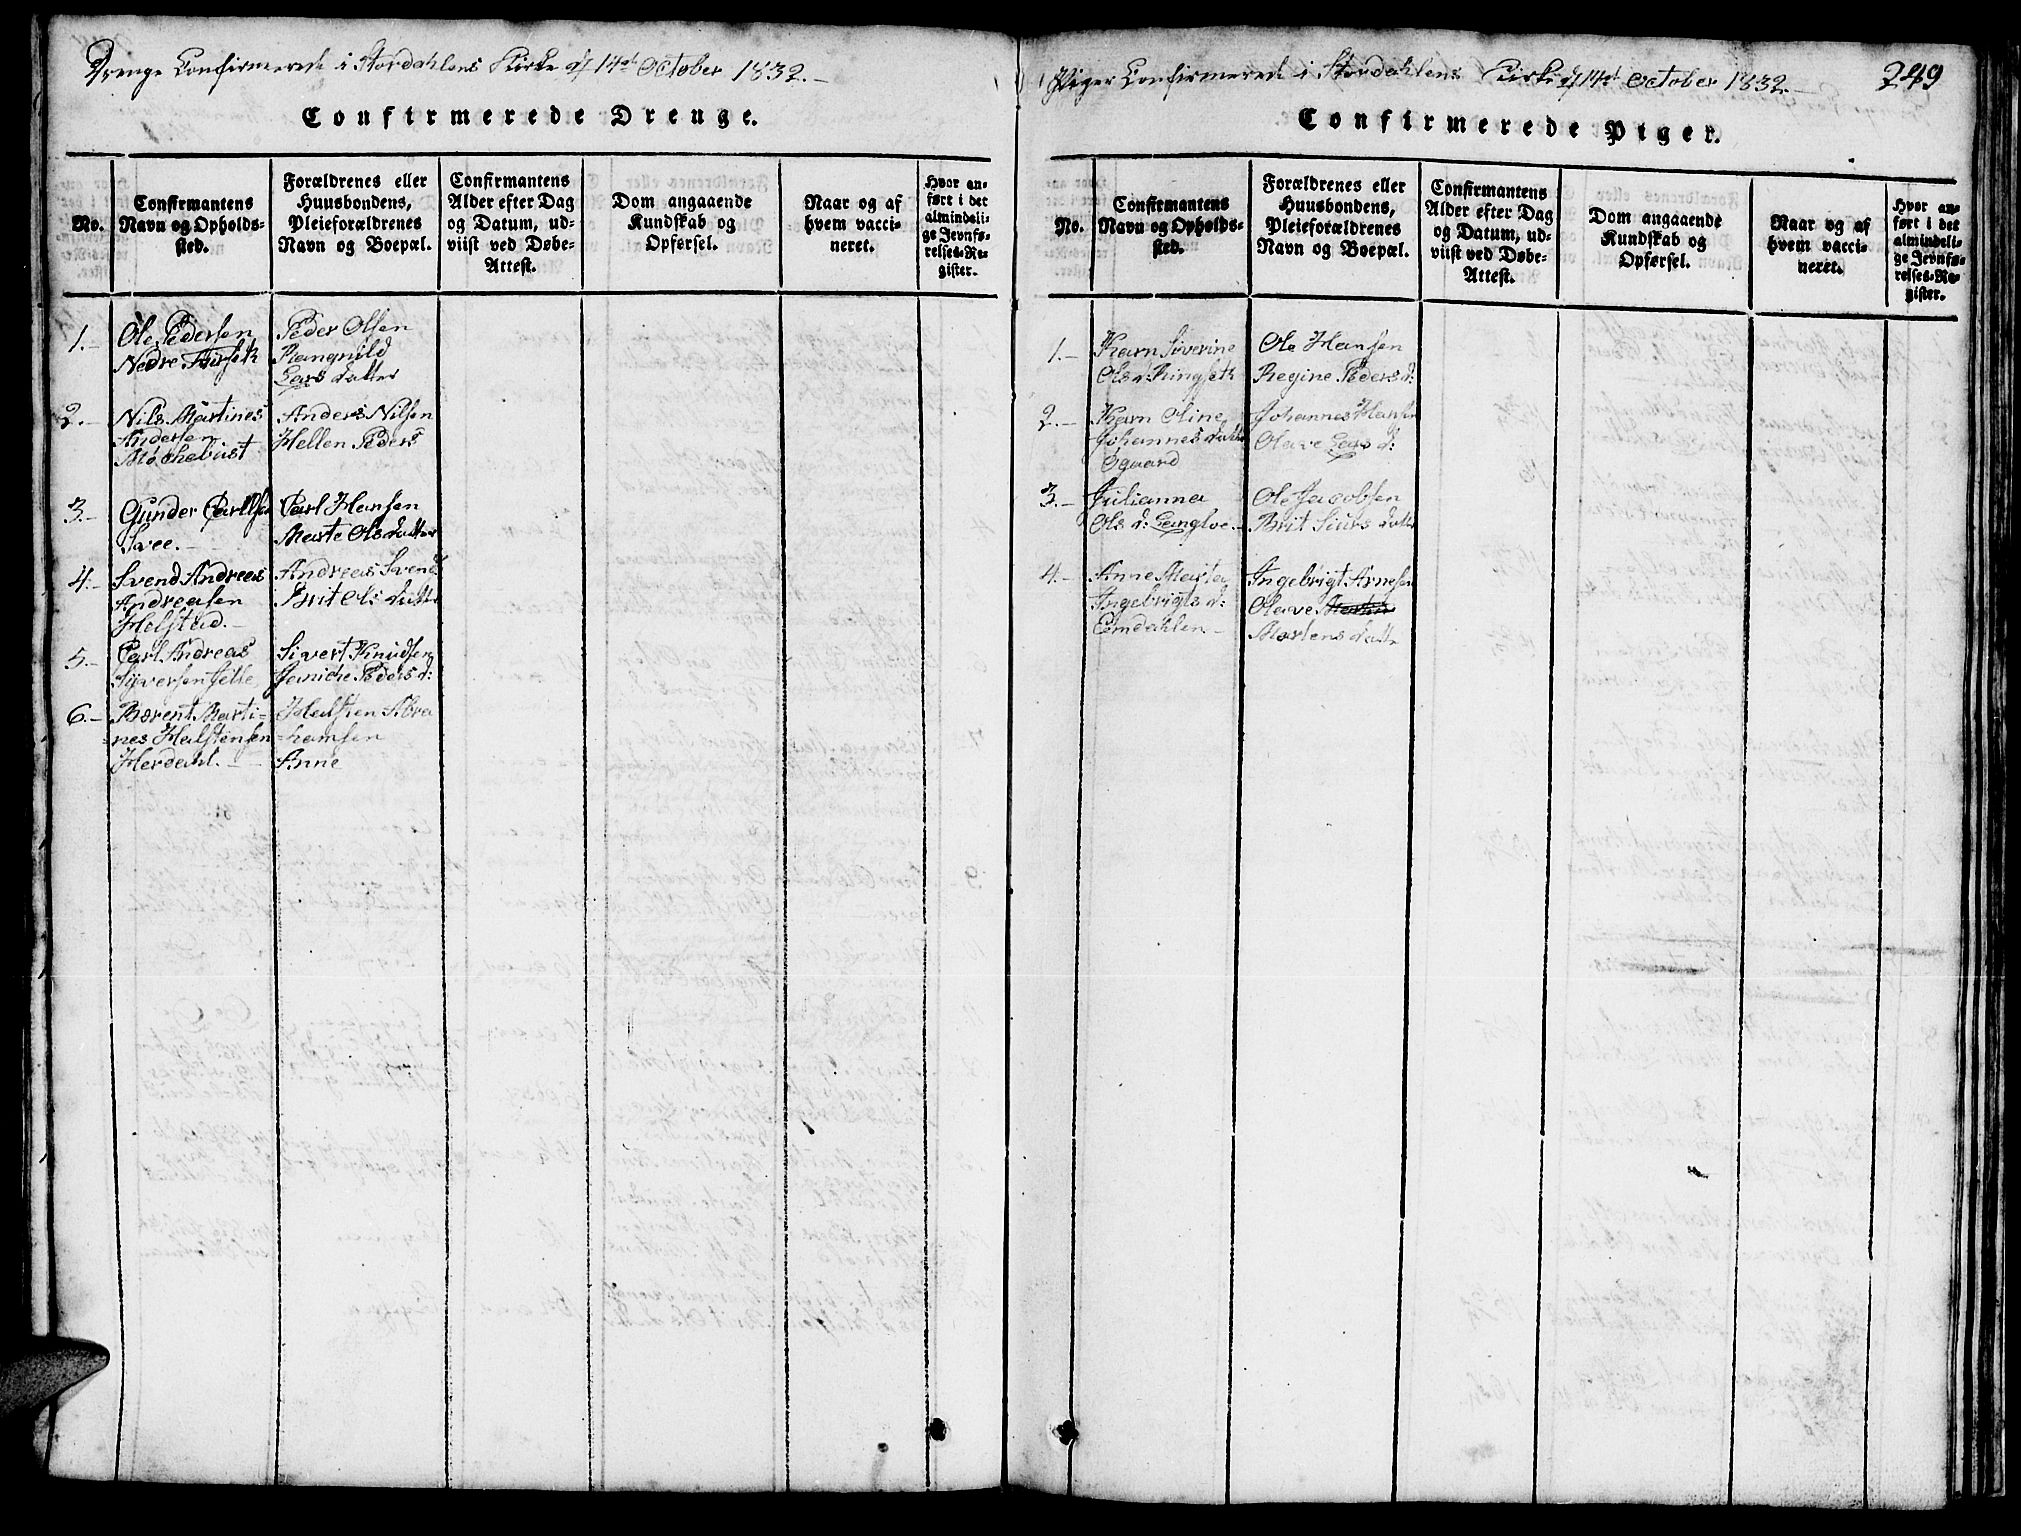 Drenge Confirmerede i Stordahlens Kirke d 14de October 1832.-
Confirmerede Drenge.
No.
Confirmantens
Navn og Opholds-
sted.
Forældrenes eller
Huusbondens,
Pleieforældrenes
Navn og Boepæl.
Confirmantens
Alder efter Dag
og Datum, ud-
viist ved Døbe-
Attest.
Dom angaaende
Kundskab og
Opførsel.
Naar og af
hvem vacci-
neret.
Hvor an-
ført i det
almindeli-
ge Jevnfø-
relses-Re-
gister.
1.-
Ole Pedersen
Nedre
Peder Olsen
Rangnild
Lars datter
2.-
Nils Martines
Andersen
Anders Nilsen
Hellen Peders
3.-
Gunder Carllsen
Svee.-
Carl Hansen
Marte Olsdatter
4.-
Svend Andreas
Andreasen
Helstad.-
Andreas Svends
Brit Ols datter
5.-
Carl Andreas
Syversen
Sivert Knudsen
Janiche Peders d:
6.-
Berent Marti-
=nes Halstensen
Herdahl.-
Halsten Abra
=hamsen
Anne
Piger Confirmerede i Stordahlens Kirke d 14de October 1832.-
249
Confirmerede Piger.
No.
Confirmantens
Navn og Opholds-
sted.
Forældrenes eller
Huusbondens,
Pleieforældrenes
Navn og Boepæl.
Confirmantens
Alder efter Dag
og Datum, ud-
viist ved Døbe-
Attest.
Dom angaaende
Kundskab og
Opførsel.
Naar og af
hvem vacci-
neret.
Hvor an-
ført i det
almindeli-
ge Jevnfø-
relses-Re-
gister.
1.-
Karn Siverine
Ols d: Ringseth
Ole Hansen
Regine Peders d:
2.-
Karn Oline
Johannes datter
Øgaard
Johannes Hansen
Olave Lars d:
3.-
Julianna
Ols d: Langloe.-
Ole Jacobsen
Brit Siurs datter
4.-
Anne Marta
Ingebrigts d:
Eemdahlen-
Ingebrigt Arnesen
Olave
Martens datter